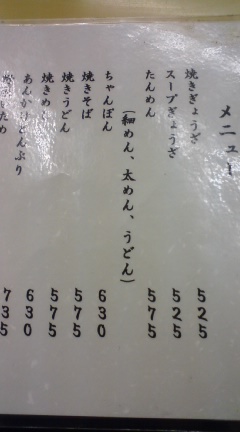 メニュー
焼きぎょうざ 525
スープぎょうざ 525
たんめん 575
(細めん、太めん、うどん)
ちゃんぽん 630
焼きそば 575
焼きうどん 575
焼きめし 575
あんかけどんぶり 630
735